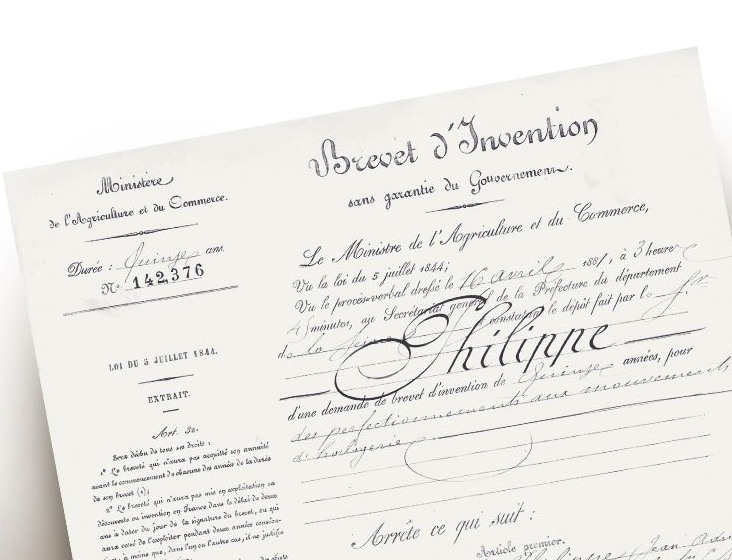 Ministère
de l'Agriculture et du Commerce.
Durée : Quinze ans.
N° 142,376
LOI DU 5 JUILLET 1844.
EXTRAIT.
Art. 32.
Sera déchu de tous ses droits :
1° Le breveté qui n'aura pas acquitté son annuité
avant le commencement de chacune des années de la durée
de son brevet (1);
2° Le breveté qui n'aura pas mis en exploitation sa
découverte ou invention en France dans le délai de deux
ans à dater du jour de la signature du brevet, ou qui
aura cessé de l'exploiter pendant deux années consécu-
à moins que, dans l'un ou l'autre cas, il ne justifie
Brevet d'Invention
sans garantie du Gouvernement.
Le Ministre de l'Agriculture et du Commerce,
Vu la loi du 5 juillet 1844;
Vu le procès-verbal dressé le 16 avril 1881, à 3 heures
45 minutes, au Secrétariat général de la Préfecture du département
de la Seine constatant le dépôt fait par l
Philippe
d'une demande de brevet d'invention de Quinze années, pour
des perfectionnements aux mouvements
d'horlogerie
Arrête ce qui suit :
Article premier.
Philippe Jean